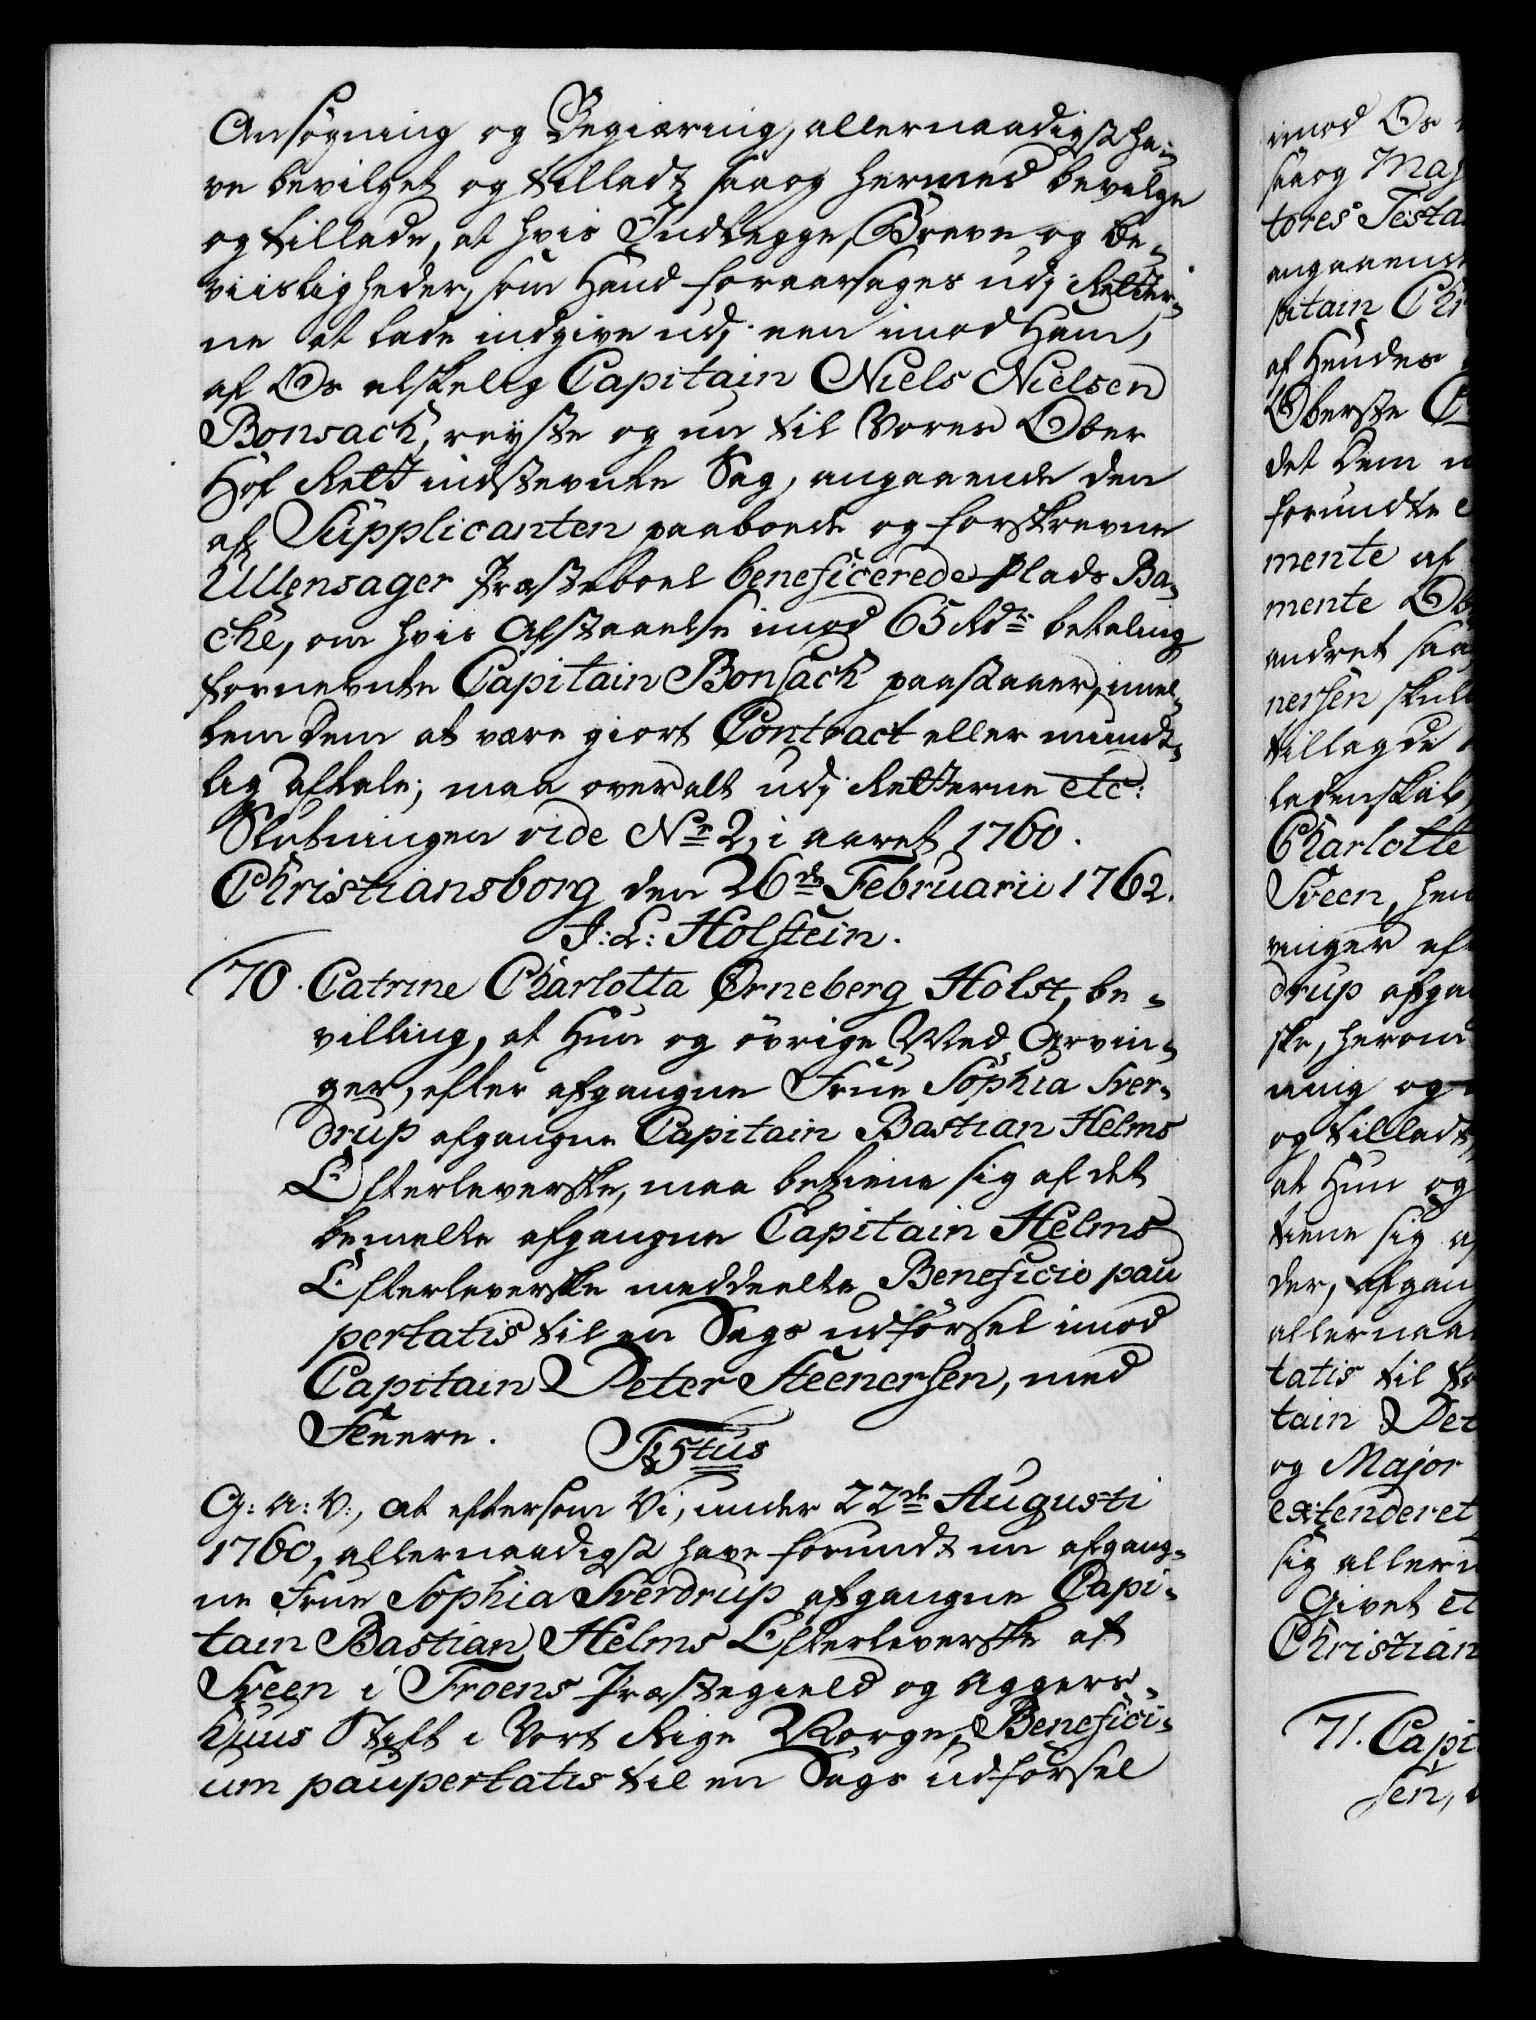 Ansøgning og Begiæring, allernaadigst ha-
ve bevilget og tilladt, saa og hermed bevilge
og tillade, at hvis Indlægge, Breve og be-
viisligheder, som Hand foraarsages udj Retter-
ne at lade indgive udj een imod Ham,
af Os elskelig Capitain Niels Nielsen
Bonsach, reyste og nu til Vores Ober
Hof Rett indstevnte Sag, angaaende den
af Supplicanten paaboede og forskrevne
Ullensager Præsteboel beneficerede Plads Ba-
che, om hvis Afstaaelse imod 65 Rdr betaling
fornevnte Capitain Bonsach paastaaer, imel-
lem Dem at være giort Contract eller mundt-
lig Aftale; maa overalt udj Retterne etc:
Slutningen vide No 2, i aaret 1760.
Christiansborg den 26de Februarii 1762.
J: L: Holstein.
70. Catrine Charlotta Ørneberg Holst, be-
villing, at Hun og øvrige Med Arvin-
ger, efter afgangne Frue Sophia Sver-
drup afgangne Capitain Bastian Helms
Efterleverske, maa betiene sig af det
bemelte afgangne Capitain Helms
Efterleverske meddeelte Beneficio pau
pertatis til en Sags udførsel imod
Capitain Peter Steenersen, med
Fleere.
Textus
G: A: V:, at eftersom Vi, under 22de Augusti
1760, allernaadigst have forundt nu afgang-
ne Frue Sophia Sverdrup afgangne Capi-
tain Bastian Helms Efterleverske af
Sveen i Froens Præstegield og Aggers-
huus Stift i Vort Rige Norge, Benefici-
um paupertatis til en Sags udførsel
imod Os
saa og Maj
tores Testa
angaaende
pitain Ch
af Hendes
Oberste C
det Dem
forundte
mente af
mente Ob
andret saa
nersen skul
tillagde
ladenskab
Charlotte
Sveen, hen
vinger eft
drup afga
ske, herom
ning og
og tilladt,
at Hun og
tiene sig a
der, afgang
allernaa
tatis til
tain Pet
og Major
extenderet
sig allern
Givet et
Christian
71. Capi
sen,